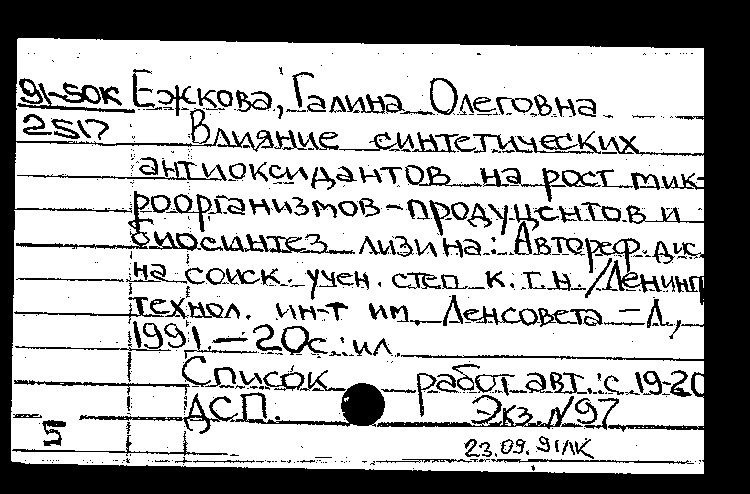 91-50К Ежкова, Галина Олеговна
2517 Влияние синтетических
антиоксидантов на рост мик-
роорганизмов-продуцентов и
биосинтез лизина: Автореф. дис.
на соиск. учен. степ к.т.н./Ленингр
технол. ин-т им. Ленсовета -Л.,
1991.-20с.:ил.
Список работ авт.: с 19-20
ДСП. Экз. N97
23.09.91ЛК